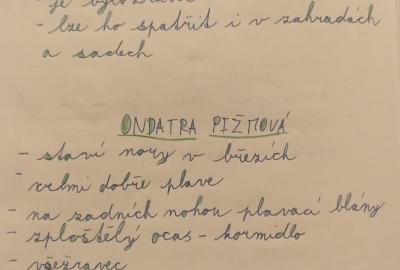 - je
- lze ho spatřit i v zahradách
a sadech
ONDATRA PIŽMOVÁ
- staví nory v březích
- velmi dobře plave
- na zadních nohou plavací blány
- zploštělý ocas - kormidlo
- všežravec